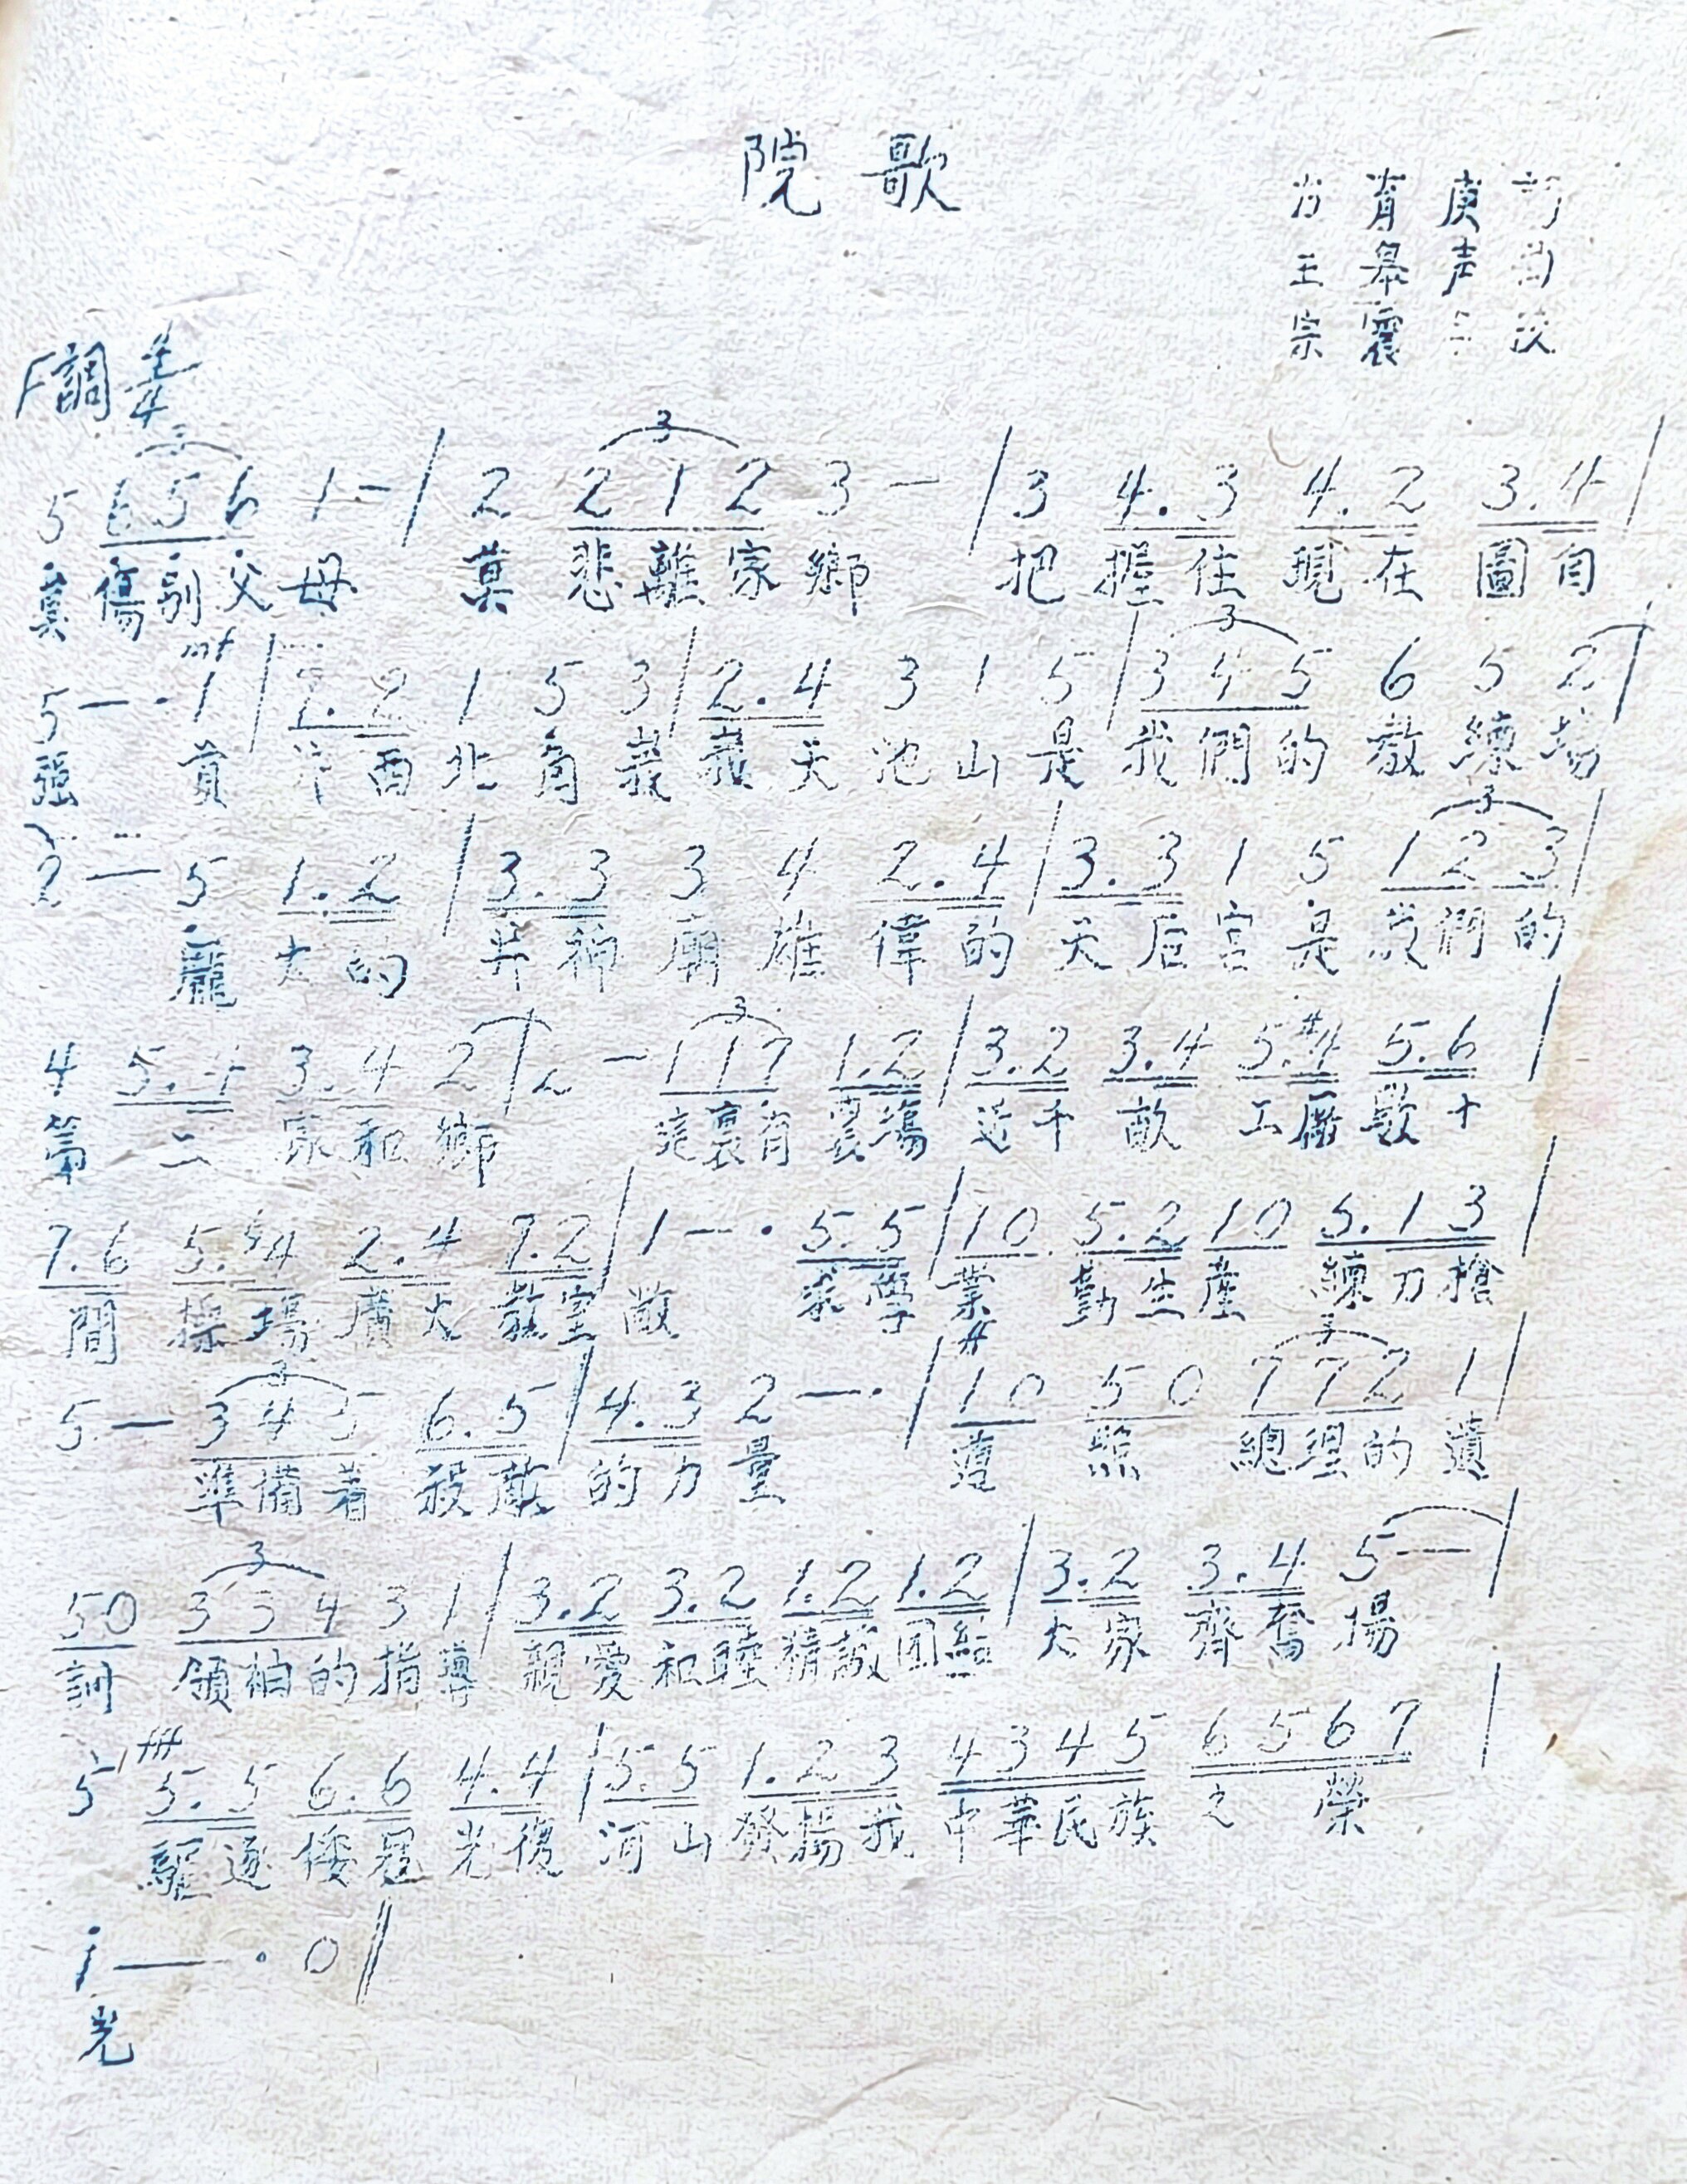 院歌
肖皋震
F調 4/4
5 6 5 6 1 — / 2 2 1 2 3 — / 3 4. 3 4. 2 3. 4 /
莫傷別父母 莫悲離家鄉 把握住現在圖自
5 — · 1 / 2. 2 1 5 3 / 2. 4 3 1 5 / 3 4 5 6 5 2 /
強 mf 西北角 峩峩天池山是我們的教練場
2 — 5 1. 2 / 3. 3 3 4 2. 4 / 3. 3 1 5 1 2 3 /
龐大的 神廟雄偉的天后宮是我們的
4 5. 4 3. 4 2 / 2 — 1 1 7 1. 2 / 3. 2 3. 4 5. #4 5. 6 /
第二家和鄉 這裏有農場近千畝工廠數十
7. 6 5. #4 2. 4 7. 2 / 1 — · 5. 5 / 1 0 5. 2 1 0 5. 1 3 /
間操場廣大教室敞 求學業勤生產練刀槍
5 — 3 4 5 6. 5 / 4. 3 2 — · / 1 0 5 0 7 7 2 1 /
準備着殺敵的力量 ff 遵照總理的遺
5 0 3 3 4 3 1 / 3. 2 3. 2 1. 2 1. 2 / 3. 2 3. 4 5 — /
訓領袖的指導親愛和睦精誠団結大家齊奮揚
5 fff 5. 5 6. 6 4. 4 / 5. 5 1. 2 3 4 3 4 5 6 5 6 7 /
驅逐倭寇光復河山發揚我中華民族之榮
1 — · 0 //
光